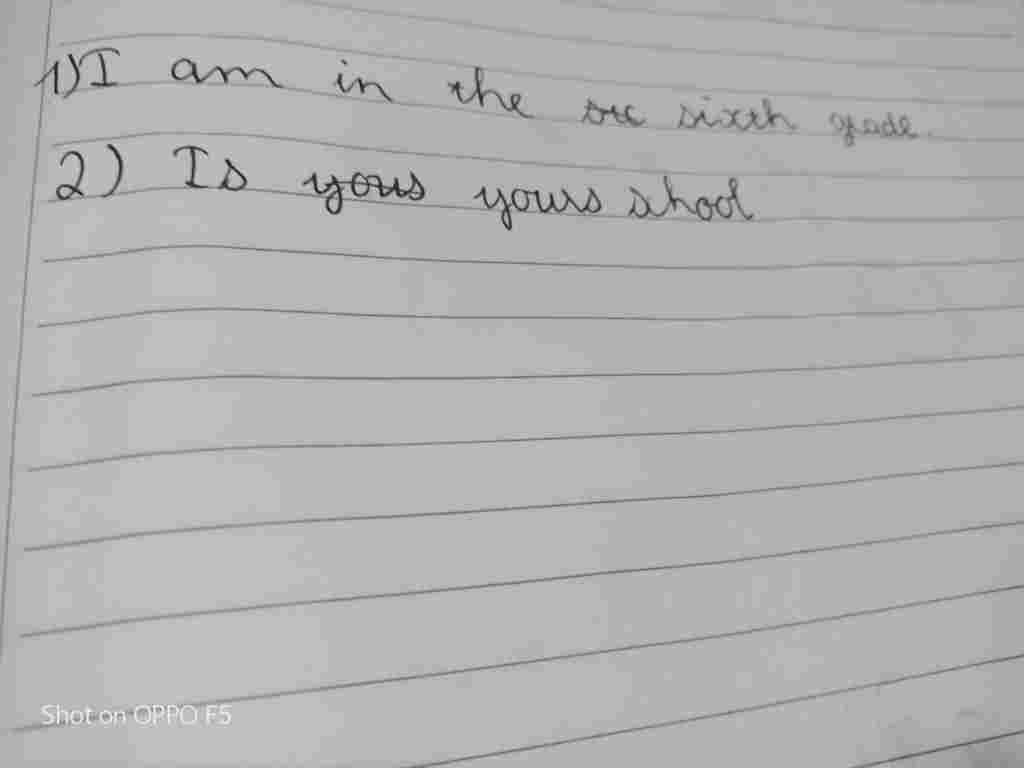 1) I am in the sixth grade.
2) Is yous yours shool
Shot on OPPO F5